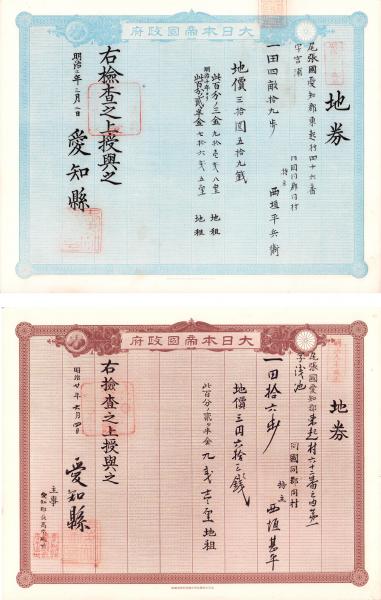 府政國帝本日大
地券
尾張國愛知郡東起村四十六番
字宮浦
同國同郡同村
持主 西垣平兵衛
一田四畝拾九歩
地價三拾圓五拾九錢
此百分ノ三金九拾壱錢八厘 地租
明治十年ヨリ
此百分ノ貳ヶ半金七拾六錢五厘 地租
右檢査之上授與之
明治
愛知縣
府政國帝本日大
地券
尾張國愛知郡東起村六十二番之内第一
字浅池
同國同郡同村
持主 西垣甚平
一田拾六歩
地價三円六拾三錢
此百分ノ貳ヶ半金九錢壱厘地租
右檢査之上授與之
明治
愛知縣
主事